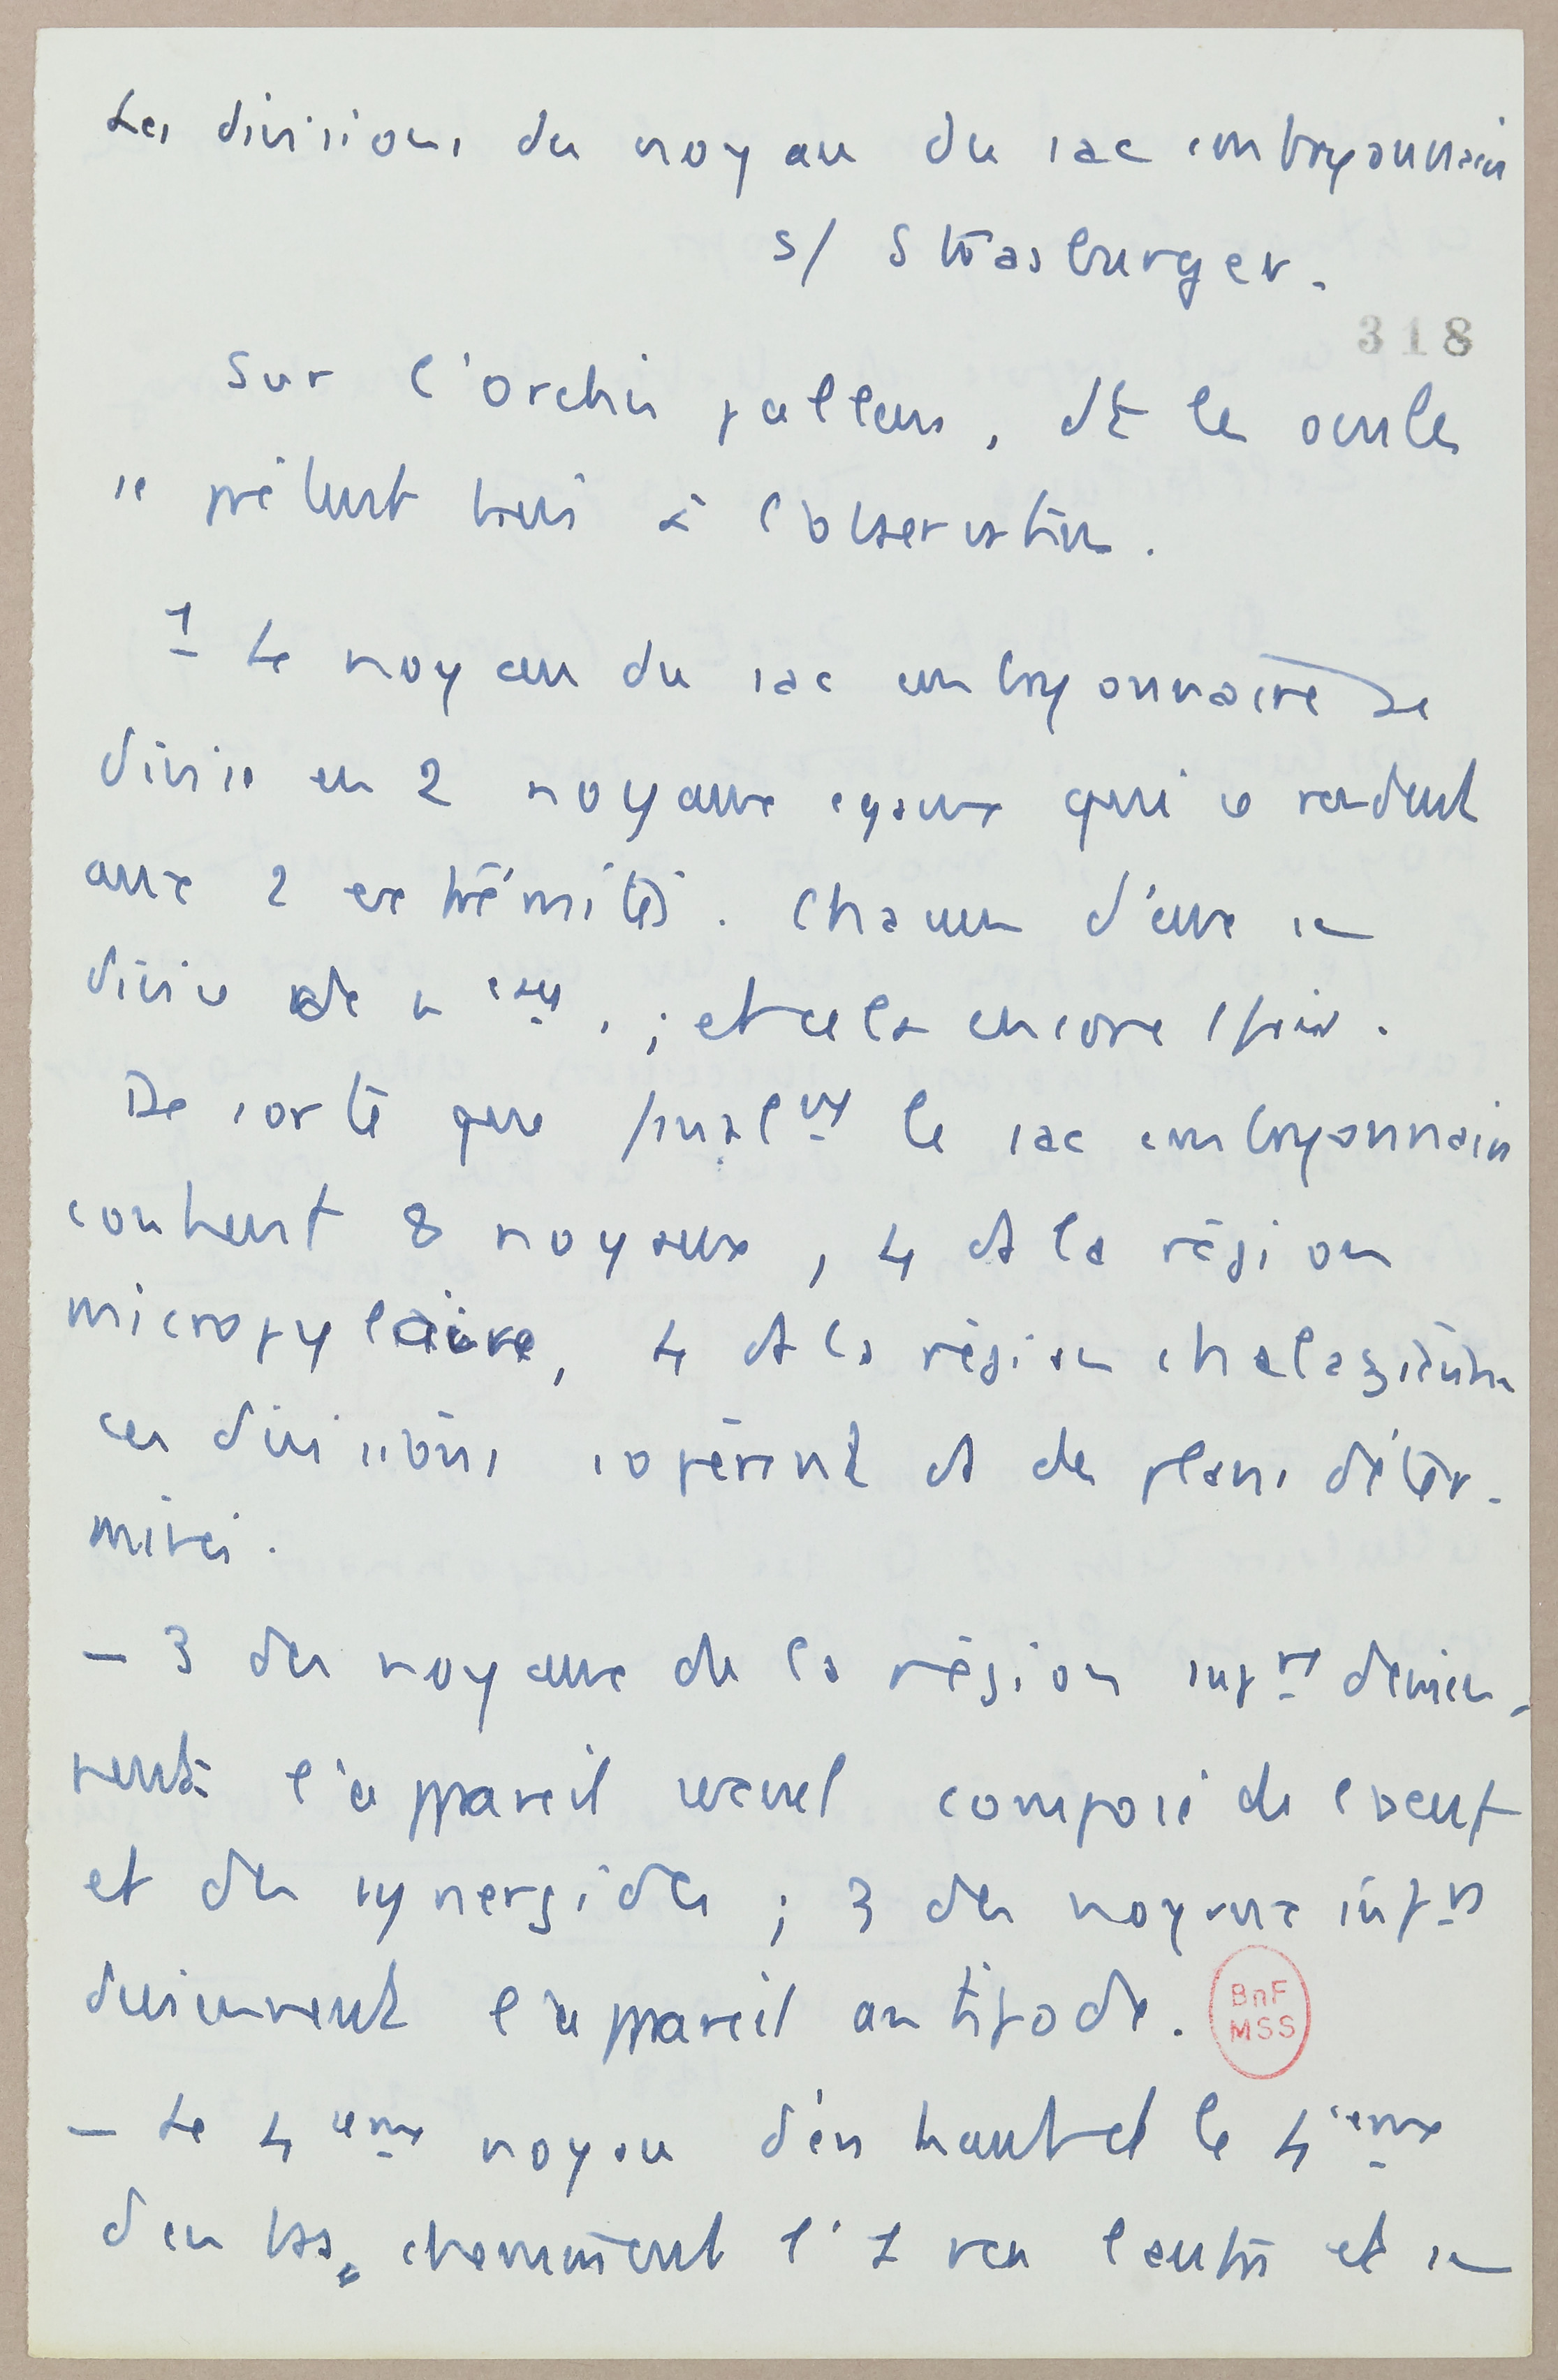 Les divisions du noyau du sac embryonnaire
s/ Strasburger.
318
Sur l'Orchis pallens, dt les ovules
se prêtent bien à l'observation.
1 Le noyau du sac embryonnaire se
divise en 2 noyaux égaux qui se rendent
aux 2 extrémités. Chacun d'eux se
divise de, ; et cela encore 1 fois.
De sorte que finalnt le sac embryonnaire
contient 8 noyaux, 4 ds la région
micropylaire, 4 ds la région chalazienne
ces divisions s'opèrent ds des plans déter-
minés.
- 3 des noyaux de la région supre devien-
nent l'appareil sexuel composé de l'oeuf
et des synergides ; 3 des noyaux infrs
deviennent l'appareil antipode.
BnF
MSS
- Le 4ième noyau d'en haut et le 4ième
d'en bas, cheminent l'1 vers l'autre et se